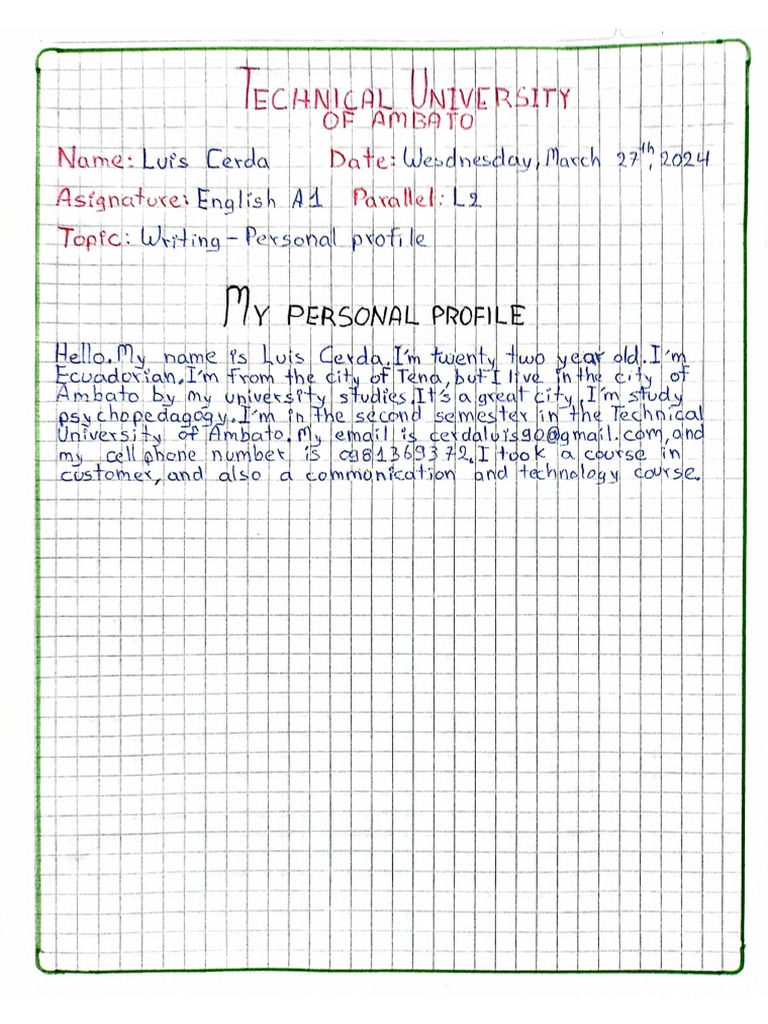 TECHNICAL UNIVERSITY
OF AMBATO
Name: Luis Cerda Date: Wesdnesday, March 27th, 2024
Asignature: English A1 Parallel: L2
Topic: Writing - Personal profile
MY PERSONAL PROFILE
Hello. My name is Luis Cerda. I'm twenty two year old. I'm
Ecuadorian. I'm from the city of Tena, but I live in the city of
Ambato by my university studies. It's a great city. I'm study
psychopedagogy. I'm in the second semester in the Technical
University of Ambato. My email is cerdaluis90@gmail.com, and
my cell phone number is 0981369372. I took a course in
customer, and also a communication and technology course.